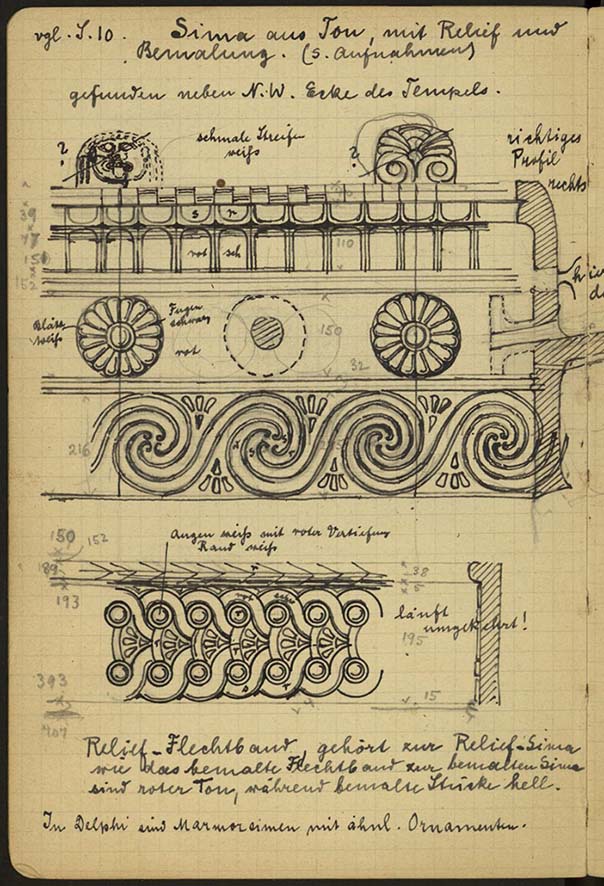 vgl. S. 10. Sima aus Ton, mit Relief und
Bemalung. (s. Aufnahmen)
gefunden neben N.W. Ecke des Tempels.
?
schmale Streifen
weiß
?
richtiges
Profil
rechts
39
s r
77
rot sch
110
152
Blätter
weiß
Fugen
schwarz
rot
150
32
216
Augen weiß mit roter Vertiefung
Rand weiß
150
152
189
r
38
5
193
läuft
umgekehrt!
195
393
15
407
Relief-Flechtband, gehört zur Relief-Sima
wie das bemalte Flechtband zur bemalten Sima
sind roter Ton, während bemalte Stücke hell.
In Delphi sind Marmorsimen mit ähnl. Ornamenten.